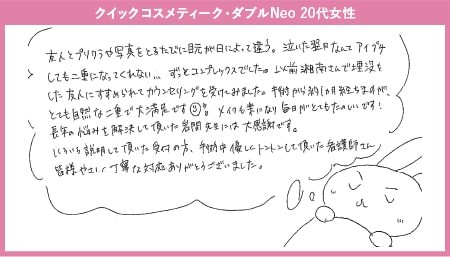 クイックコスメティーク・ダブルNeo 20代女性
友人とプリクラや写真をとるたびに目元が日によって違う。泣いた翌日なんてアイプチ
しても二重になってくれない… ずっとコンプレックスでした。以前湘南さんで埋没を
した友人にすすめられてカウンセリングを受けてみました。手術から約1カ月経ちますが、
とても自然な二重で大満足です メイクも楽になり毎日がとてもたのしいです!
長年の悩みを解決して頂いた岩間先生には大感謝です。
いろいろ説明して頂いた受付の方、手術中優しくトントンして頂いた看護師さん
皆様やさしい丁寧な対応ありがとうございました。